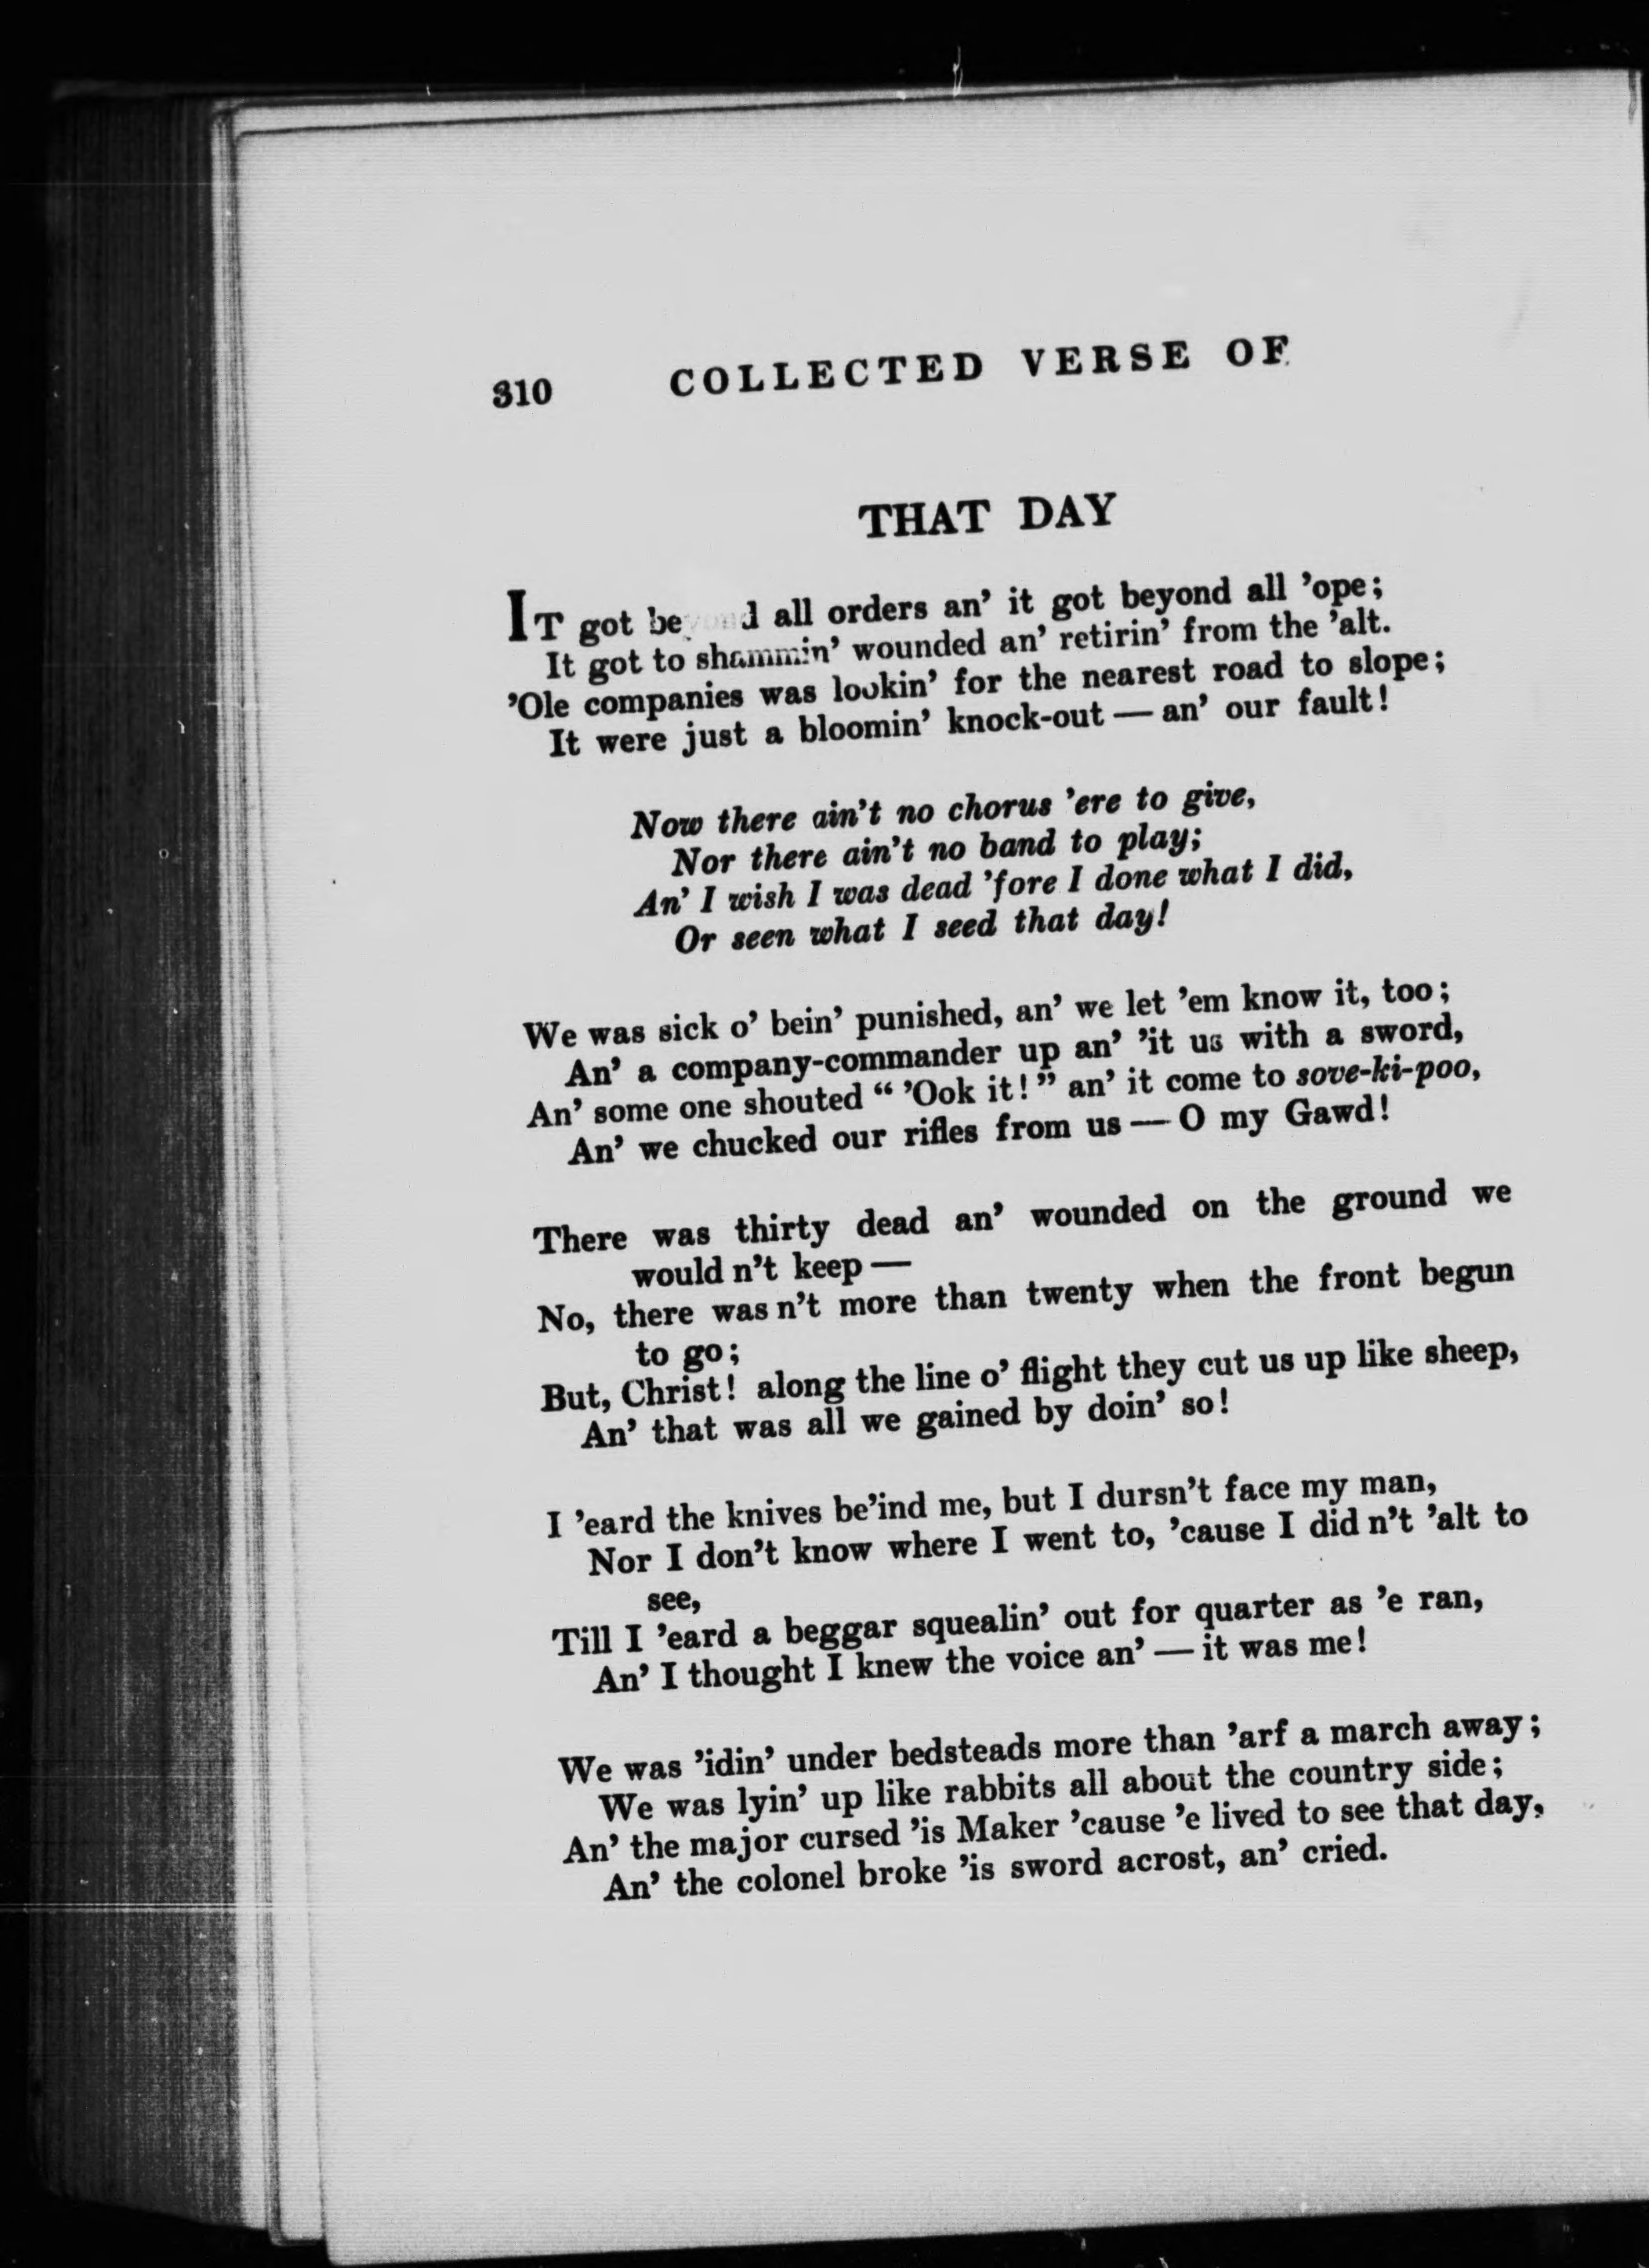 310 COLLECTED VERSE OF
THAT DAY
IT got beyond all orders an' it got beyond all 'ope;
It got to shammin' wounded an' retirin' from the 'alt.
'Ole companies was lookin' for the nearest road to slope;
It were just a bloomin' knock-out — an' our fault!
Now there ain't no chorus 'ere to give,
Nor there ain't no band to play;
An' I wish I was dead 'fore I done what I did,
Or seen what I seed that day!
We was sick o' bein' punished, an' we let 'em know it, too;
An' a company-commander up an' 'it us with a sword,
An' some one shouted " 'Ook it!" an' it come to sove-ki-poo,
An' we chucked our rifles from us — O my Gawd!
There was thirty dead an' wounded on the ground we
would n't keep —
No, there was n't more than twenty when the front begun
to go;
But, Christ! along the line o' flight they cut us up like sheep,
An' that was all we gained by doin' so!
I 'eard the knives be'ind me, but I dursn't face my man,
Nor I don't know where I went to, 'cause I did n't 'alt to
see,
Till I 'eard a beggar squealin' out for quarter as 'e ran,
An' I thought I knew the voice an' — it was me!
We was 'idin' under bedsteads more than 'arf a march away;
We was lyin' up like rabbits all about the country side;
An' the major cursed 'is Maker 'cause 'e lived to see that day,
An' the colonel broke 'is sword acrost, an' cried.